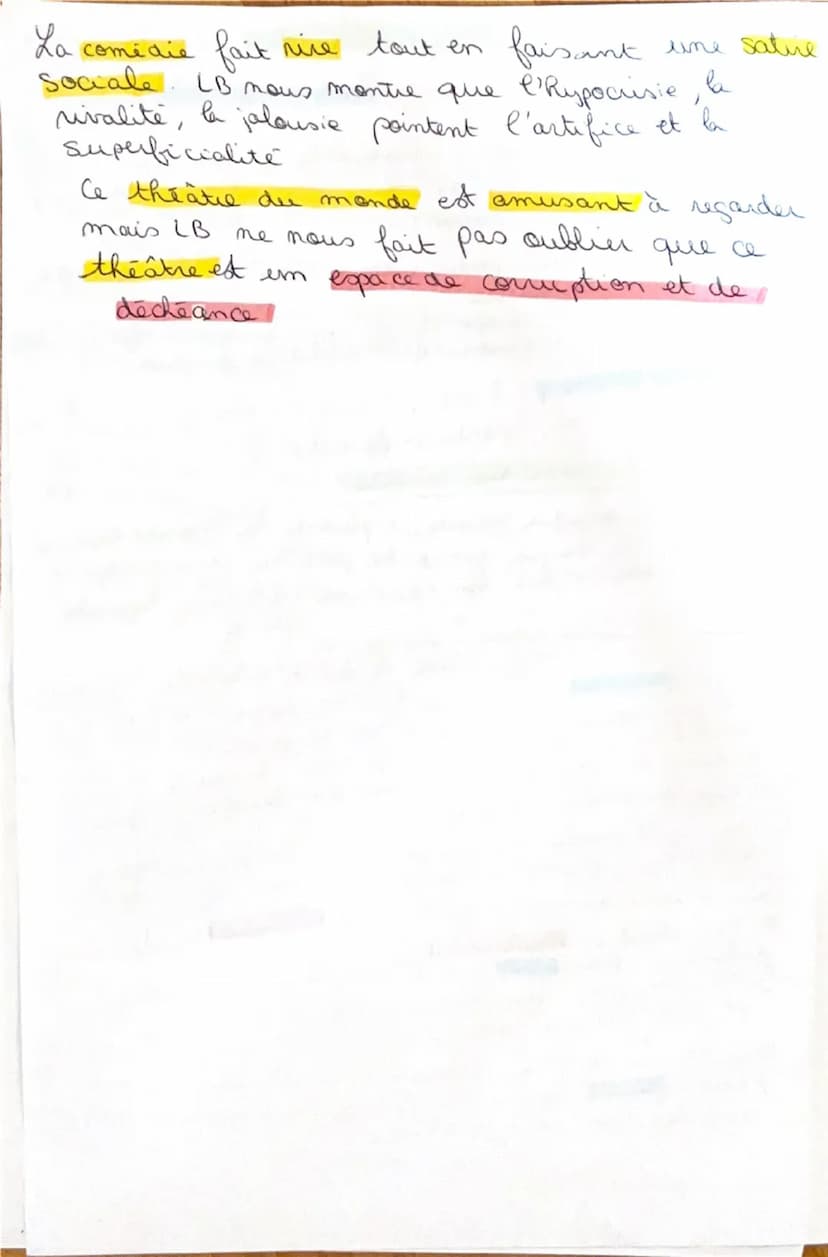 La comédie fait rire tout en faisant une satire
sociale. LB nous montre que l'hypocrisie, la
rivalité, la jalousie pointent l'artifice et la
superficialité
Ce théâtre du monde est amusant à regarder
mais LB ne nous fait pas oublier que ce
théâtre est un espace de corruption et de
déchéance